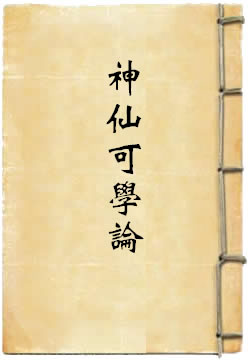 神仙可學論